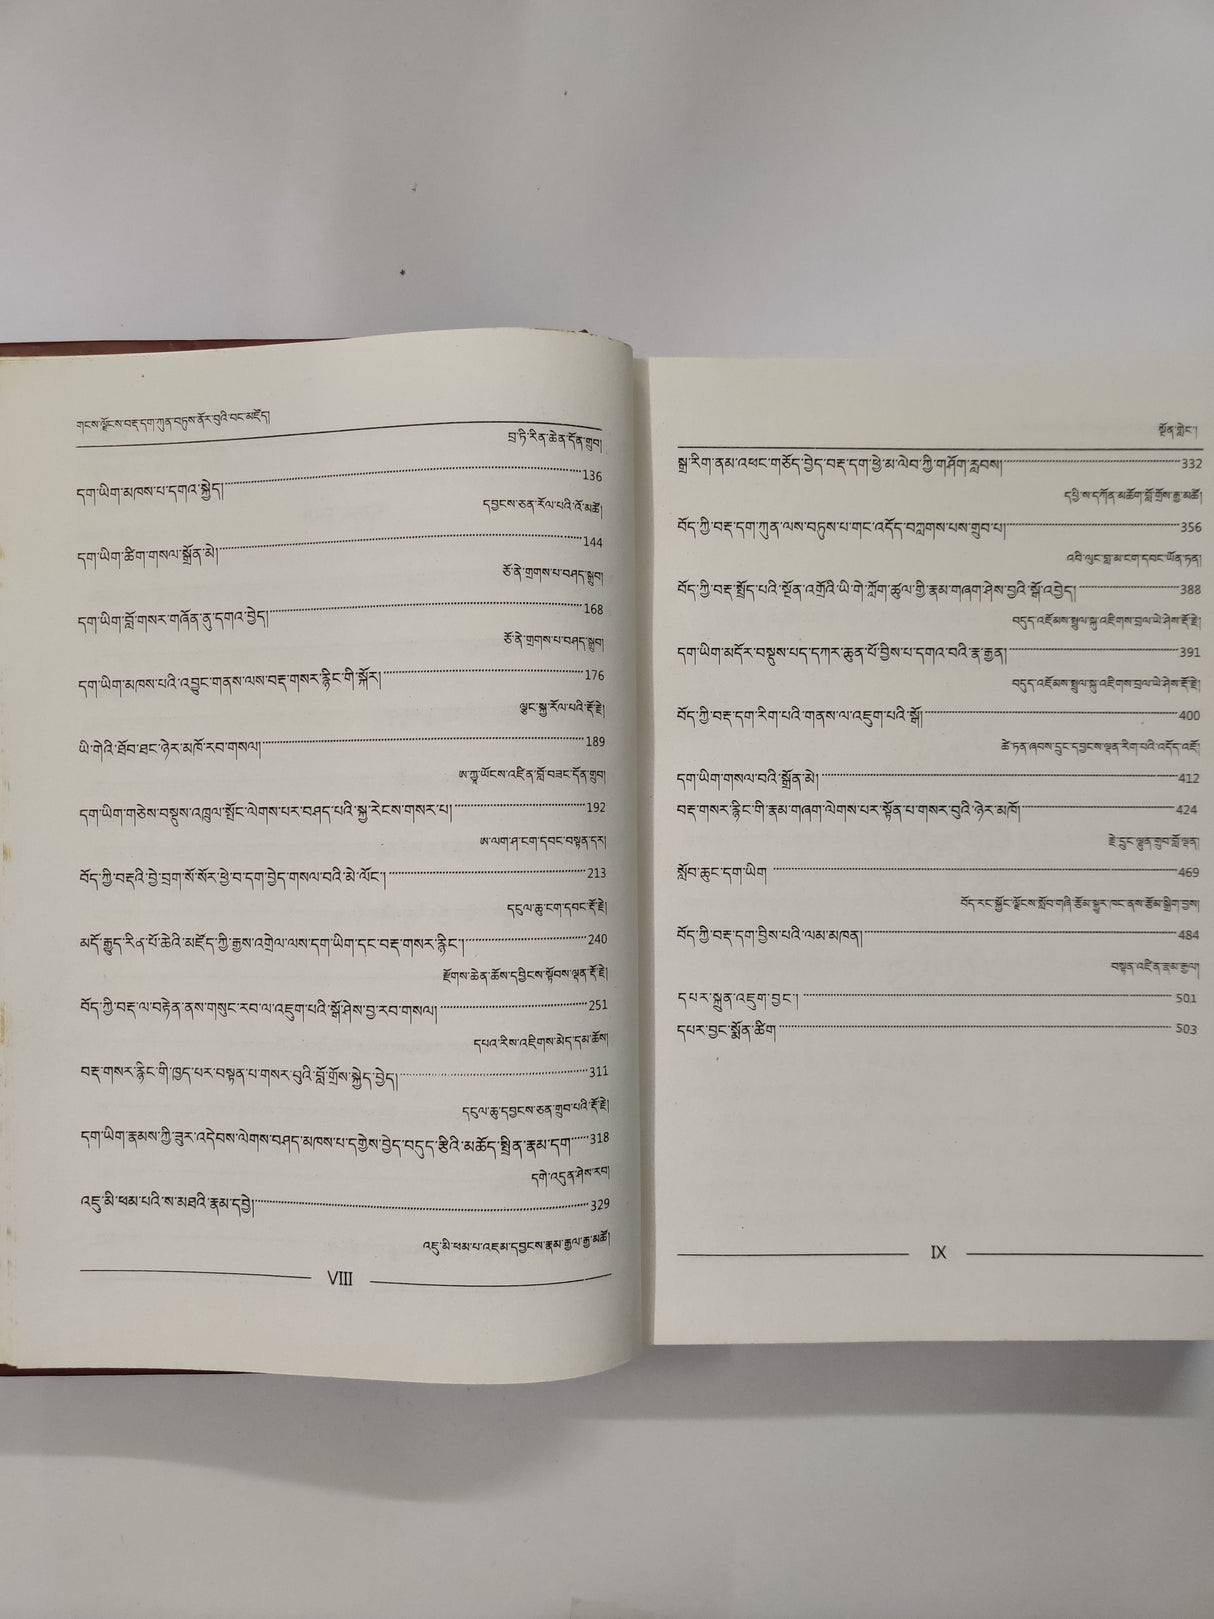 གངས་ལྗོངས་བརྡ་དག་ཀུན་བཏུས་ནོར་བུའི་བང་མཛོད།
བྲ་ཏི་རིན་ཆེན་དོན་གྲུབ།
དག་ཡིག་མཁས་པ་དགའ་སྐྱེད།........136
དབྱངས་ཅན་རོལ་པའི་འོ་མཚོ།
དག་ཡིག་ཚིག་གསལ་སྒྲོན་མེ།........144
ཅོ་ནེ་གྲགས་པ་བཤད་སྒྲུབ།
དག་ཡིག་བློ་གསར་གཞོན་ནུ་དགའ་བྱེད།........168
ཅོ་ནེ་གྲགས་པ་བཤད་སྒྲུབ།
དག་ཡིག་མཁས་པའི་འབྱུང་གནས་ལས་བརྡ་གསར་རྙིང་གི་སྐོར།........176
ལྕང་སྐྱ་རོལ་པའི་རྡོ་རྗེ།
ཡི་གེའི་ཐོབ་ཐང་ཉེར་མཁོ་རབ་གསལ།........189
ཨ་ཀྱཱ་ཡོངས་འཛིན་བློ་བཟང་དོན་གྲུབ།
དག་ཡིག་གཅེས་བསྡུས་འཁྲུལ་སྤོང་ལེགས་པར་བཤད་པའི་སྐྱ་རེངས་གསར་པ།........192
ཨ་ལག་ཤ་ངག་དབང་བསྟན་དར།
བོད་ཀྱི་བརྡའི་བྱེ་བྲག་སོ་སོར་ཕྱེ་བ་དག་བྱེད་གསལ་བའི་མེ་ལོང་།........213
དངུལ་ཆུ་ངག་དབང་རྡོ་རྗེ།
མདོ་རྒྱུད་རིན་པོ་ཆེའི་མཛོད་ཀྱི་རྒྱས་འགྲེལ་ལས་དག་ཡིག་དང་བརྡ་གསར་རྙིང་།........240
རྫོགས་ཆེན་ཆོས་དབྱིངས་སྟོབས་ལྡན་རྡོ་རྗེ།
བོད་ཀྱི་བརྡ་ལ་བརྟེན་ནས་གསུང་རབ་ལ་འཇུག་པའི་སྒོ་ཤེས་བྱ་རབ་གསལ།........251
དཔའ་རིས་འཇིགས་མེད་དམ་ཆོས།
བརྡ་གསར་རྙིང་གི་ཁྱད་པར་བསྟན་པ་གསར་བུའི་བློ་གྲོས་སྐྱེད་བྱེད།........311
དངུལ་ཆུ་དབྱངས་ཅན་གྲུབ་པའི་རྡོ་རྗེ།
དག་ཡིག་རྣམས་ཀྱི་ཟུར་འདེབས་ལེགས་བཤད་མཁས་པ་དགྱེས་བྱེད་བདུད་རྩིའི་མཆོད་སྤྲིན་རྣམ་དག........318
དགེ་འདུན་ཤེས་རབ།
འཇུ་མི་ཕམ་པའི་ས་མཐའི་རྣམ་དབྱེ།........329
འཇུ་མི་ཕམ་པ་འཇམ་དབྱངས་རྣམ་རྒྱལ་རྒྱ་མཚོ།
VIII
སྔོན་གླེང་།
སྒྲ་རིག་ནམ་འཕང་གཅོད་བྱེད་བརྡ་དག་ཕྱེ་མ་ལེབ་ཀྱི་གཤོག་རླབས།........332
དཔྱི་ས་དཀོན་མཆོག་བློ་གྲོས་རྒྱ་མཚོ།
བོད་ཀྱི་བརྡ་དག་ཀུན་ལས་བཏུས་པ་གང་འདོད་བཀླགས་པས་གྲུབ་པ།........356
འབི་ལུང་བླ་མ་ངག་དབང་ཡོན་ཏན།
བོད་ཀྱི་བརྡ་སྤྲོད་པའི་སྔོན་འགྲོའི་ཡི་གེ་ཀློག་ཚུལ་གྱི་རྣམ་གཞག་ཤེས་བྱའི་སྒོ་འབྱེད།........388
བདུད་འཇོམས་སྤྲུལ་སྐུ་འཇིགས་བྲལ་ཡེ་ཤེས་རྡོ་རྗེ།
དག་ཡིག་མདོར་བསྡུས་པད་དཀར་ཆུན་པོ་བྱིས་པ་དགའ་བའི་རྣ་རྒྱན།........391
བདུད་འཇོམས་སྤྲུལ་སྐུ་འཇིགས་བྲལ་ཡེ་ཤེས་རྡོ་རྗེ།
བོད་ཀྱི་བརྡ་དག་རིག་པའི་གནས་ལ་འཇུག་པའི་སྒོ།........400
ཚེ་ཏན་ཞབས་དྲུང་དབྱངས་ལྡན་རིག་པའི་འདོད་འཇོ།
དག་ཡིག་གསལ་བའི་སྒྲོན་མེ།........412
བརྡ་གསར་རྙིང་གི་རྣམ་གཞག་ལེགས་པར་སྟོན་པ་གསར་བུའི་ཉེར་མཁོ།........424
རྗེ་དྲུང་ལྷུན་གྲུབ་བློ་ལྡན།
སློབ་ཆུང་དག་ཡིག........469
བོད་རང་སྐྱོང་ལྗོངས་སློབ་གཞི་རྩོམ་སྒྱུར་ཁང་ནས་རྩོམ་སྒྲིག་བྱས།
བོད་ཀྱི་བརྡ་དག་བྱིས་པའི་ལམ་མཁན།........484
བསྟན་འཛིན་རྣམ་རྒྱལ།
དཔར་སྐྲུན་འཇུག་བྱང་།........501
དཔར་བྱང་སྨོན་ཚིག........503
IX